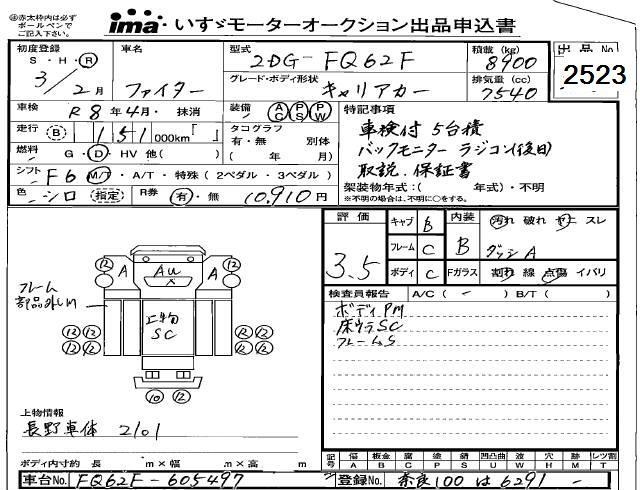 ㊟赤太枠内は必ず
ボールペンで
ご記入下さい。
ima・いすゞモーターオークション出品申込書
初度登録 車名 型式 積載 (kg) 出品No
S・H・Ⓡ 2DG- FQ62F 8900
3/2月 ファイター グレード・ボディ形状 排気量 (cc) 2523
キャリアカー 7540
車検 R8年4月・抹消 装備 AC PS PW 特記事項
走行 B 151 000km「 」 タコグラフ 車検付 5台積
有・無 別体 バックモニター ラジコン(後日)
燃料 G・Ⓓ・HV 他( ) ( 年 月) 取説・保証書
シフト F6 M/T・A/T・特殊(2ペダル・3ペダル) 架装物年式:( 年式)・不明
色 シロ 指定 R券 有・無 10,910円 ※不明の場合は、不明に○をする。
評価 キャブ B 内装 汚れ 破れ ヤニ スレ
3.5 フレーム C B ダッシA
ボディ C Fガラス 割れ 線 点傷 イバリ
検査員報告 A/C( - ) B/T( )
ボディPM
床ウラSC
フレームS
12 12
A Au A
12 12
フレーム
部品外しM
上物
SC
12 12 12 12
12 12 12 12
10 12
上物情報
長野車体 2101
ボディ内寸約 長 m×幅 m×高 m
記号 傷 板金 腐 塗 錆 凹凸曲 波 穴 跡 レツ割
A B C P S U W H M T
車台No. FQ62F-605497 登録No. 奈良100は6291